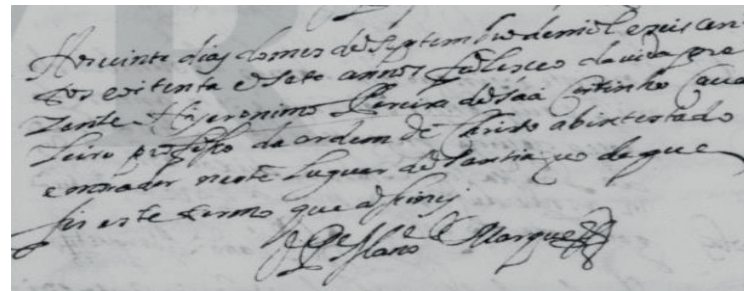 Aos uinte dias do mes de septembro de mil e seis cen
tos e oitenta e sete annos faleseo da uida pre
zente Hyeronimo Pereira de saá Coutinho Caua
leiro profeso da ordem de Christo abintestado
e morador neste luguar de santiaguo de que
fis este termo que asiney
Marques